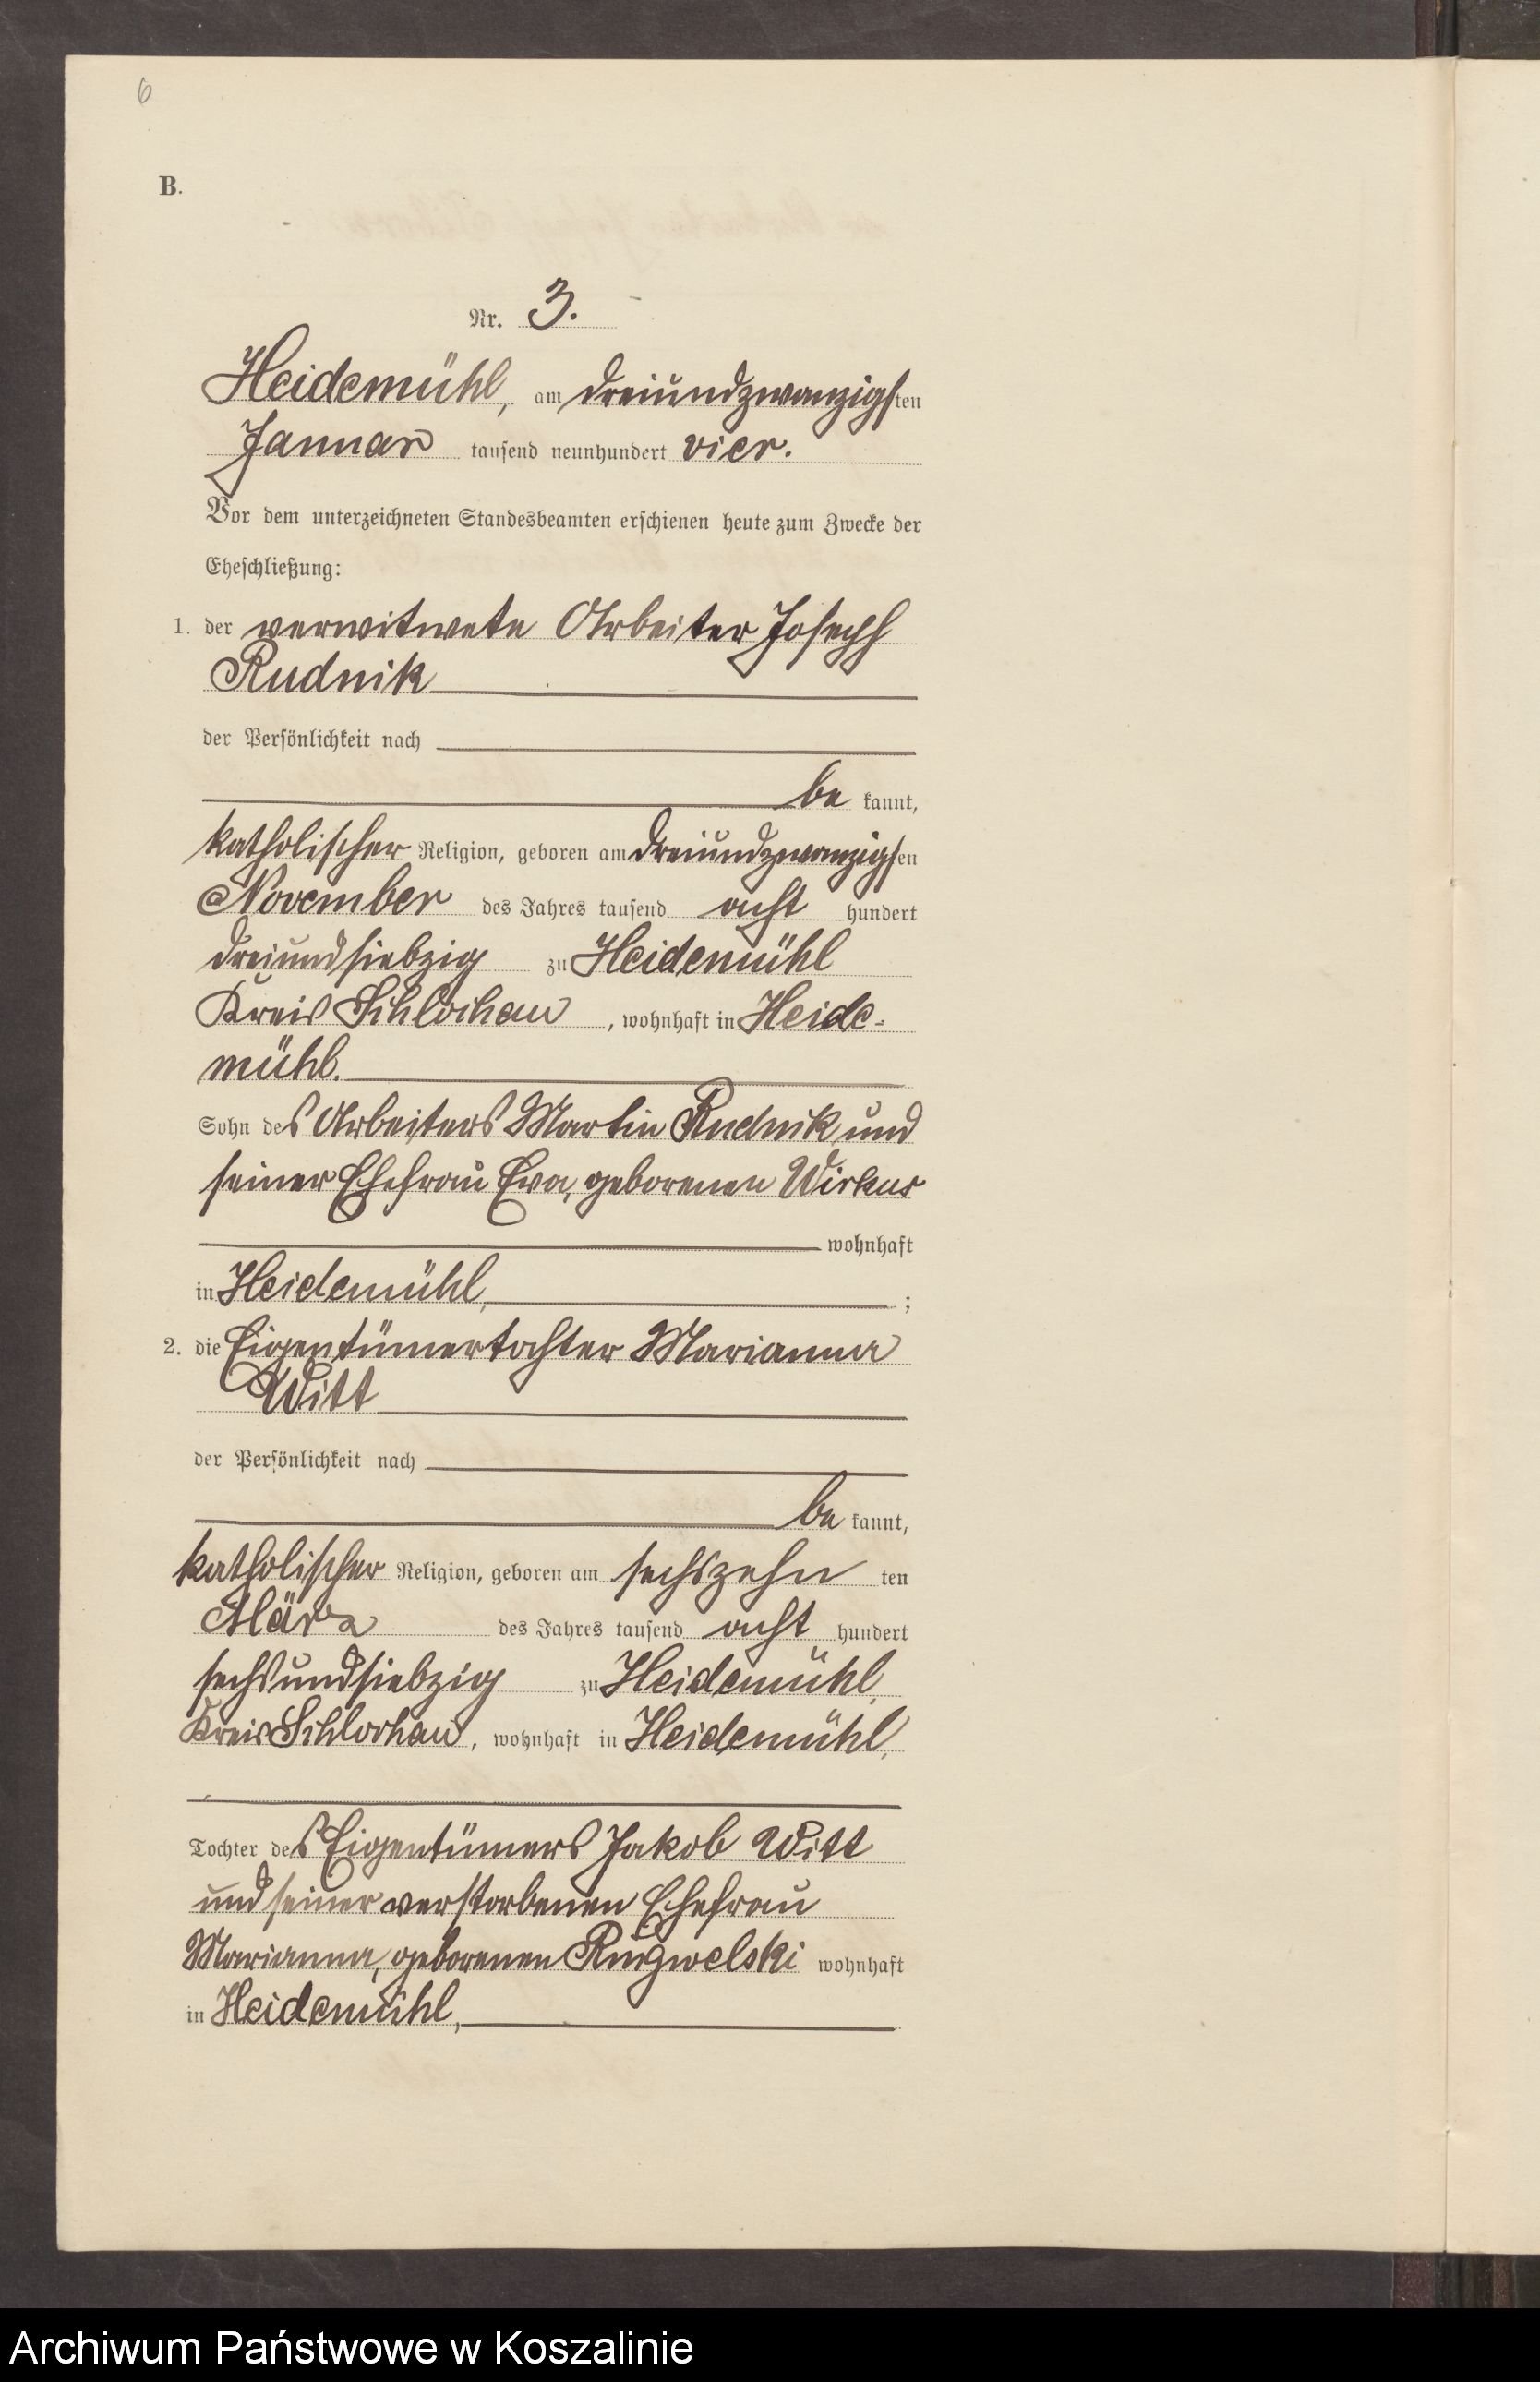 6
B.
Nr. 3.
Heidemühl, am dreiundzwanzigsten
Januar tausend neunhundert vier.
Vor dem unterzeichneten Standesbeamten erschienen heute zum Zwecke der
Eheschließung:
1. der verwitwete Arbeiter Joseph
Rudnik
der Persönlichkeit nach
be kannt,
katholischer Religion, geboren am dreiundzwanzigsten
November des Jahres tausend acht hundert
dreiundsiebzig zu Heidemühl
Kreis Schlochau, wohnhaft in Heide-
mühl.
Sohn des Arbeiters Martin Rudnik und
seiner Ehefrau Eva, geborenen Wirkus
wohnhaft
in Heidemühl, ;
2. die Eigentümertochter Marianna
Witt
der Persönlichkeit nach
be kannt,
katholischer Religion, geboren am sechszehn ten
März des Jahres tausend acht hundert
sechsundsiebzig zu Heidemühl,
Kreis Schlochau, wohnhaft in Heidemühl,
Tochter des Eigentümers Jakob Witt
und seiner verstorbenen Ehefrau
Marianna, geborenen wohnhaft
in Heidemühl,
Archiwum Państwowe w Koszalinie